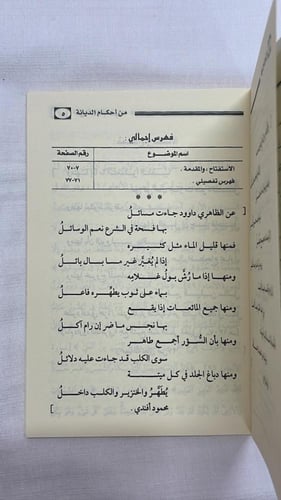 من أحكام الديانة
٥
فهرس إجمالي:
اسم الموضوع رقم الصفحة
الاستفتاح، والمقدمة. ٧-٧٠
فهرس تفصيلي. ٧١-٧٧
* * *
[ عن الظاهري داوود جاءت مسائلُ
بها فسحة في الشرع نعم الوسائلُ
فمنها قليل الماء مثل كثيره
إذا لم يُغيَّر غير ما بال بائلُ
ومنها إذا ما رُشَّ بولُ غلامِهِ
بماء على ثوب يطهره فاعلُ
ومنها جميع المائعات إذا يقع
بها نجس ما ضر إن رام آكلُ
ومنها بأن السُّؤر أجمع طاهر
سوى الكلب قد جاءت عليه دلائلُ
ومنها دباغ الجلد في كل ميتة
يُطهِّرُ والخنزير والكلب داخلُ
محمود أفندي. ]